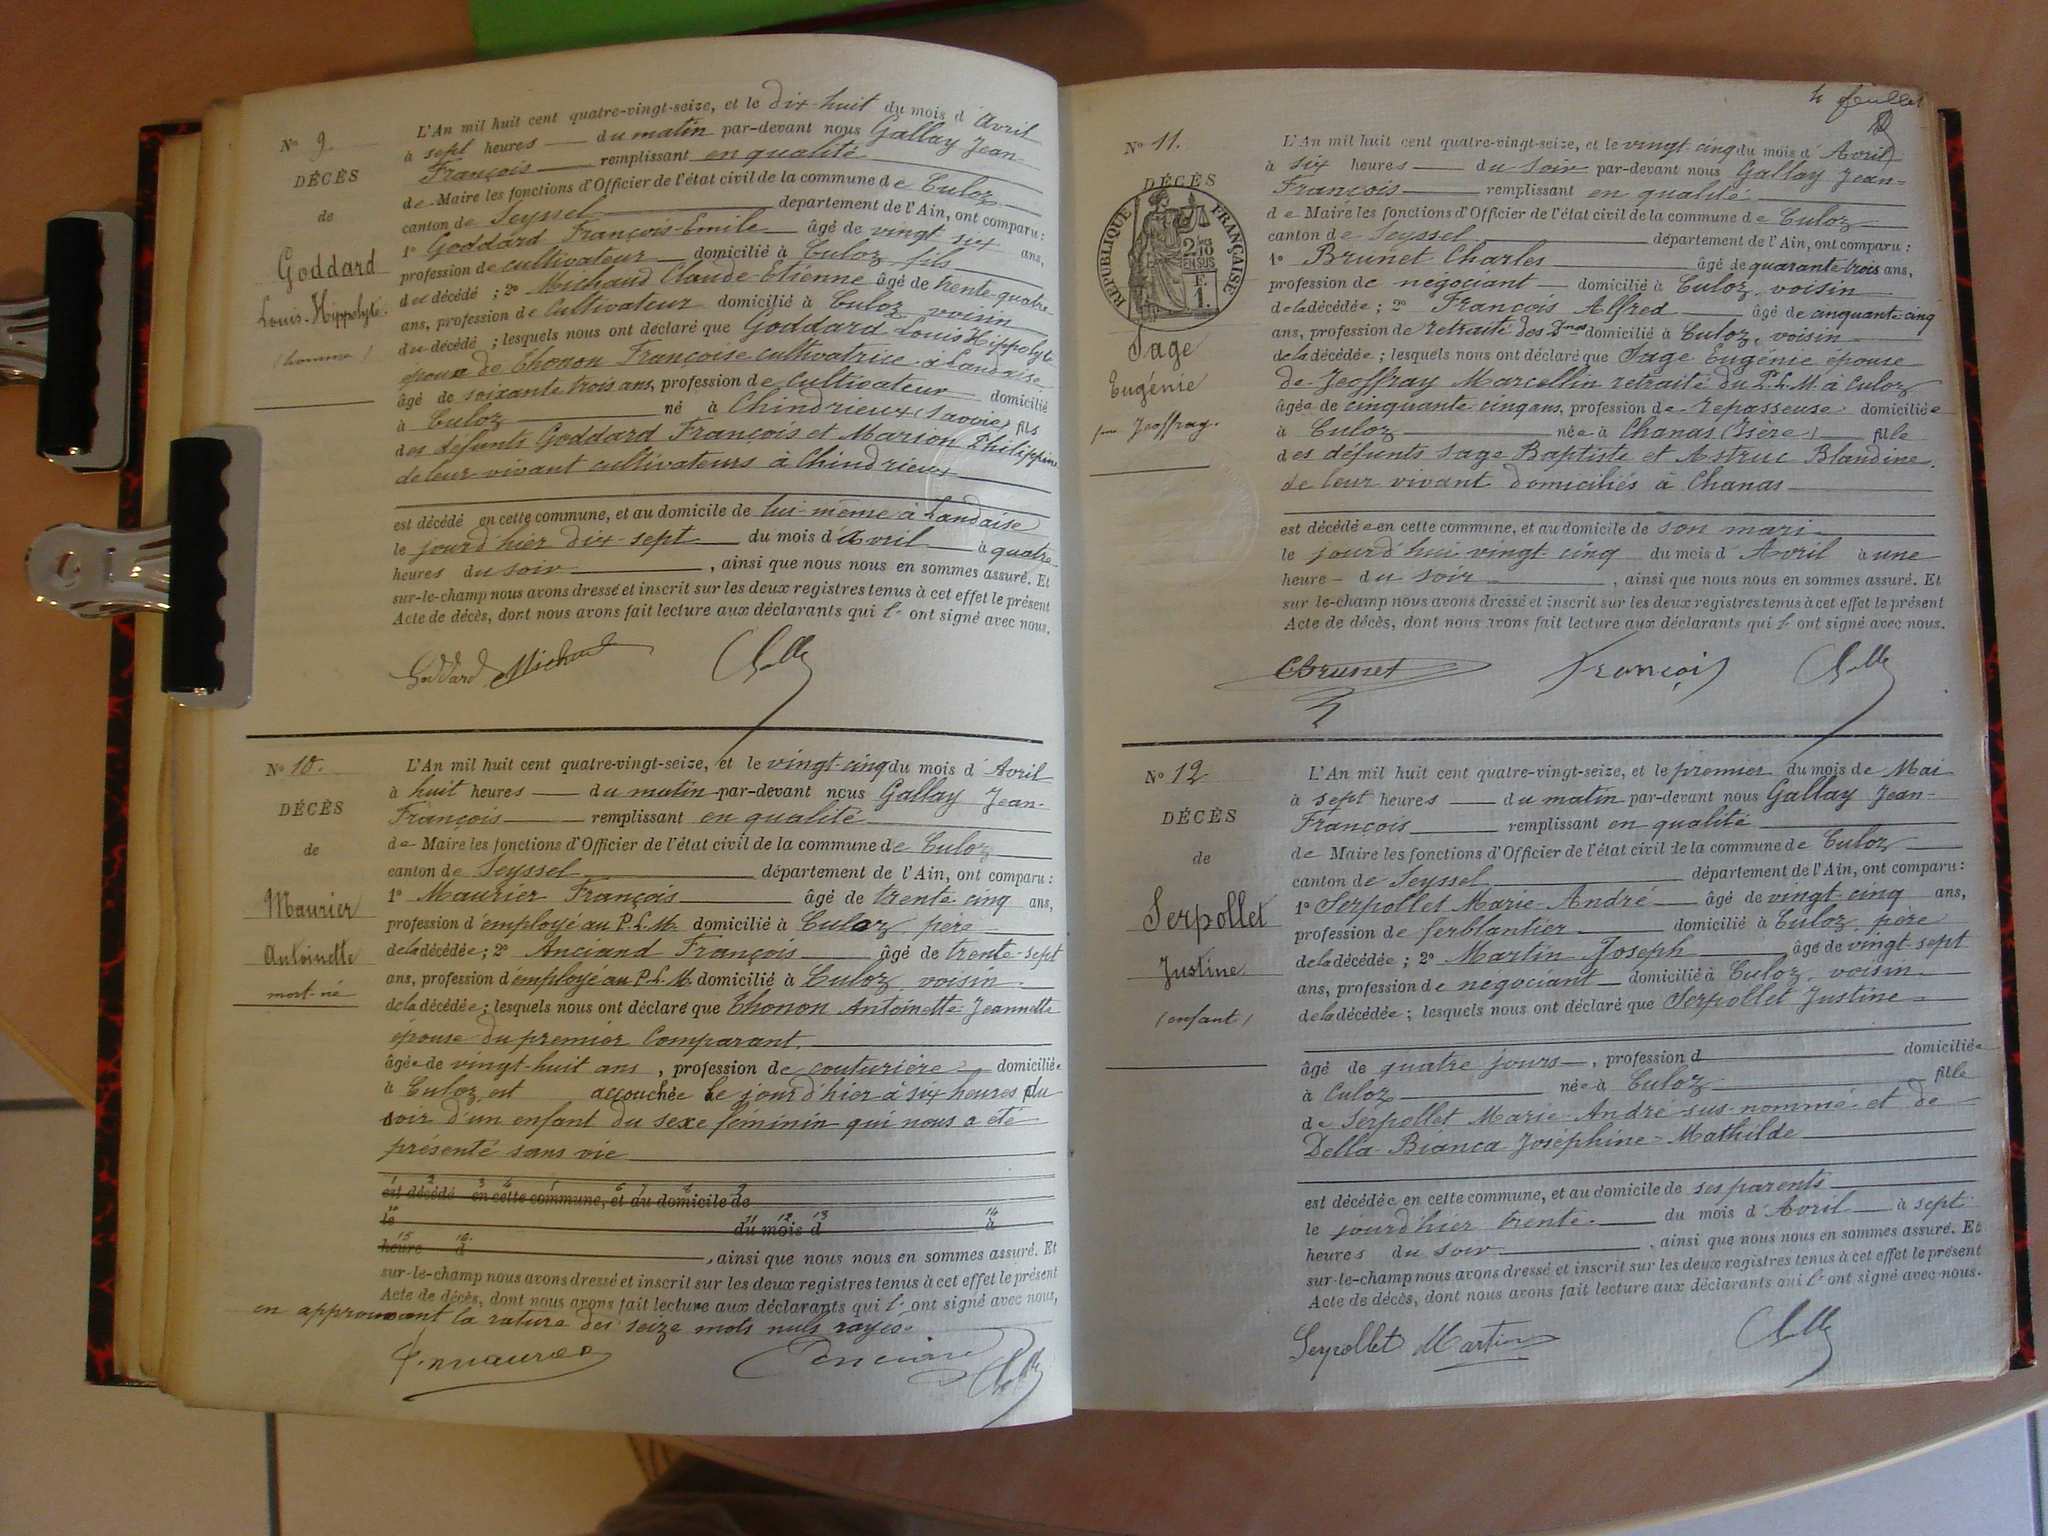 N° 9.
DÉCÈS
de
Goddard
Louis-Hippolyte.
(homme)
L'An mil huit cent quatre-vingt-seize, et le dix-huit du mois d'Avril
à sept heures du matin par-devant nous Gallay Jean-
François remplissant en qualité
de Maire les fonctions d'Officier de l'état civil de la commune de Culoz
canton de Seyssel département de l'Ain, ont comparu :
1° Goddard François-Emile âgé de vingt six ans,
profession de cultivateur domicilié à Culoz, fils
du décédé ; 2° Michaud Claude Etienne âgé de trente-quatre
ans, profession de cultivateur domicilié à Culoz, voisin
du décédé ; lesquels nous ont déclaré que Goddard Louis Hippolyte
époux de Thonon Françoise cultivatrice à Landaise
âgé de soixante trois ans, profession de cultivateur domicilié
à Culoz né à Chindrieux (Savoie) fils
des défunts Goddard François et Marion Philippine
de leur vivant cultivateurs à Chindrieux
est décédé en cette commune, et au domicile de lui-même à Landaise
le jourd'hier dix-sept du mois d'Avril à quatre
heures du soir, ainsi que nous nous en sommes assuré. Et
sur-le-champ nous avons dressé et inscrit sur les deux registres tenus à cet effet le présent
Acte de décès, dont nous avons fait lecture aux déclarants qui l'ont signé avec nous.
Goddard Michaud
N° 10.
DÉCÈS
de
Maurier
Antoinette
mort-né
L'An mil huit cent quatre-vingt-seize, et le vingt-cinq du mois d'Avril
à huit heures du matin par-devant nous Gallay Jean-
François remplissant en qualité
de Maire les fonctions d'Officier de l'état civil de la commune de Culoz
canton de Seyssel département de l'Ain, ont comparu :
1° Maurier François âgé de trente-cinq ans,
profession d'employé au P.L.M. domicilié à Culoz, père
de la décédée ; 2° Anciand François âgé de trente-sept
ans, profession d'employé au P.L.M. domicilié à Culoz, voisin
de la décédée ; lesquels nous ont déclaré que Thonon Antoinette-Jeannette
épouse du premier Comparant.
âgée de vingt-huit ans, profession de couturière domiciliée
à Culoz, est accouchée le jourd'hier à six heures du
soir d'un enfant du sexe féminin qui nous a été
présenté sans vie
1 2 3 4 5 6 7 8 9
est décédé en cette commune, et au domicile de
10 11 12 13 14
le du mois d à
15 16
heure d, ainsi que nous nous en sommes assuré. Et
sur-le-champ nous avons dressé et inscrit sur les deux registres tenus à cet effet le présent
Acte de décès, dont nous avons fait lecture aux déclarants qui l'ont signé avec nous,
en approuvant la rature des seize mots nuls rayés.
4 feuillet
N° 11.
DÉCÈS
RÉPUBLIQUE FRANÇAISE
2/10 EN SUS
F. 1.
Sage
Eugénie
fme Jeoffray.
L'An mil huit cent quatre-vingt-seize, et le vingt-cinq du mois d'Avril
à six heures du soir par-devant nous Gallay Jean-
François remplissant en qualité
de Maire les fonctions d'Officier de l'état civil de la commune de Culoz
canton de Seyssel département de l'Ain, ont comparu :
1° Brunet Charles âgé de quarante-trois ans,
profession de négociant domicilié à Culoz, voisin
de la décédée ; 2° François Alfred âgé de cinquante-cinq
ans, profession de retraité des Dnes domicilié à Culoz, voisin
de la décédée ; lesquels nous ont déclaré que Sage Eugénie épouse
de Jeoffray Marcellin retraité du P.L.M. à Culoz
âgée de cinquante cinq ans, profession de repasseuse domiciliée
à Culoz née à Chanas (Isère) fille
des défunts Sage Baptiste et Astruc Blandine.
de leur vivant domiciliés à Chanas
est décédée en cette commune, et au domicile de son mari
le jourd'hui vingt-cinq du mois d'Avril à une
heure du soir, ainsi que nous nous en sommes assuré. Et
sur-le-champ nous avons dressé et inscrit sur les deux registres tenus à cet effet le présent
Acte de décès, dont nous avons fait lecture aux déclarants qui l'ont signé avec nous.
CBrunet François
N° 12
DÉCÈS
de
Serpollet
Justine
(enfant)
L'An mil huit cent quatre-vingt-seize, et le premier du mois de Mai
à sept heures du matin par-devant nous Gallay Jean-
François remplissant en qualité
de Maire les fonctions d'Officier de l'état civil de la commune de Culoz
canton de Seyssel département de l'Ain, ont comparu :
1° Serpollet Marie-André âgé de vingt-cinq ans,
profession de ferblantier domicilié à Culoz, père
de la décédée ; 2° Martin Joseph âgé de vingt-sept
ans, profession de négociant domicilié à Culoz, voisin
de la décédée ; lesquels nous ont déclaré que Serpollet Justine
âgé de quatre jours, profession d domiciliée
à Culoz née à Culoz fille
de Serpollet Marie-André sus-nommé et de
Della-Bianca Joséphine-Mathilde
est décédée en cette commune, et au domicile de ses parents
le jourd'hier trente du mois d'Avril à sept
heures du soir, ainsi que nous nous en sommes assuré. Et
sur-le-champ nous avons dressé et inscrit sur les deux registres tenus à cet effet le présent
Acte de décès, dont nous avons fait lecture aux déclarants qui l'ont signé avec nous.
Serpollet Martin